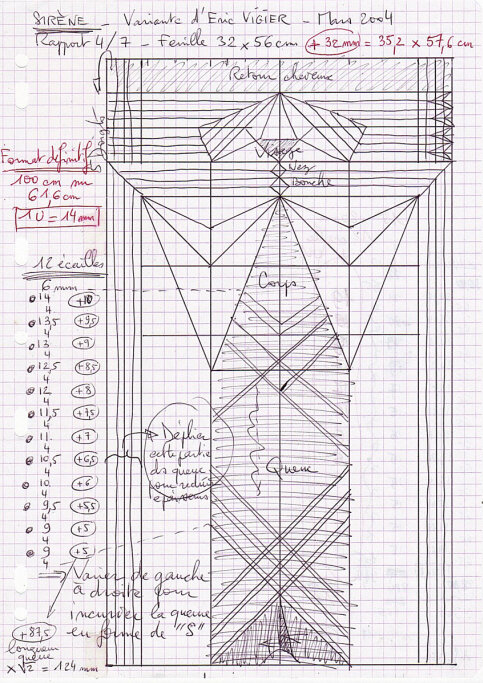 SIRÈNE - Variante d'Eric VIGIER - Mars 2004
Rapport 4/7 - Feuille 32 x 56 cm (+ 32 mm) = 35,2 x 57,6 cm
Retour cheveux
Format définitif
100 cm sur
61,6 cm
1U = 14 mm
Visage
Nez
Bouche
12 écailles
6 mm
14 +10
4
13,5 +9,5
4
13 +9
4
12,5 +8,5
4
12 +8
4
11,5 +7,5
4
11 +7
4
10,5 +6,5
4
10 +6
4
9,5 +5,5
4
9 +5
4
9 +5
4
Corps
Déplier
cette partie
de queue
pour réduire
épaisseurs
Queue
Varier de gauche
à droite pour
incurver la queue
en forme de "S"
+87,5
longueur
queue
x√2 = 124 mm